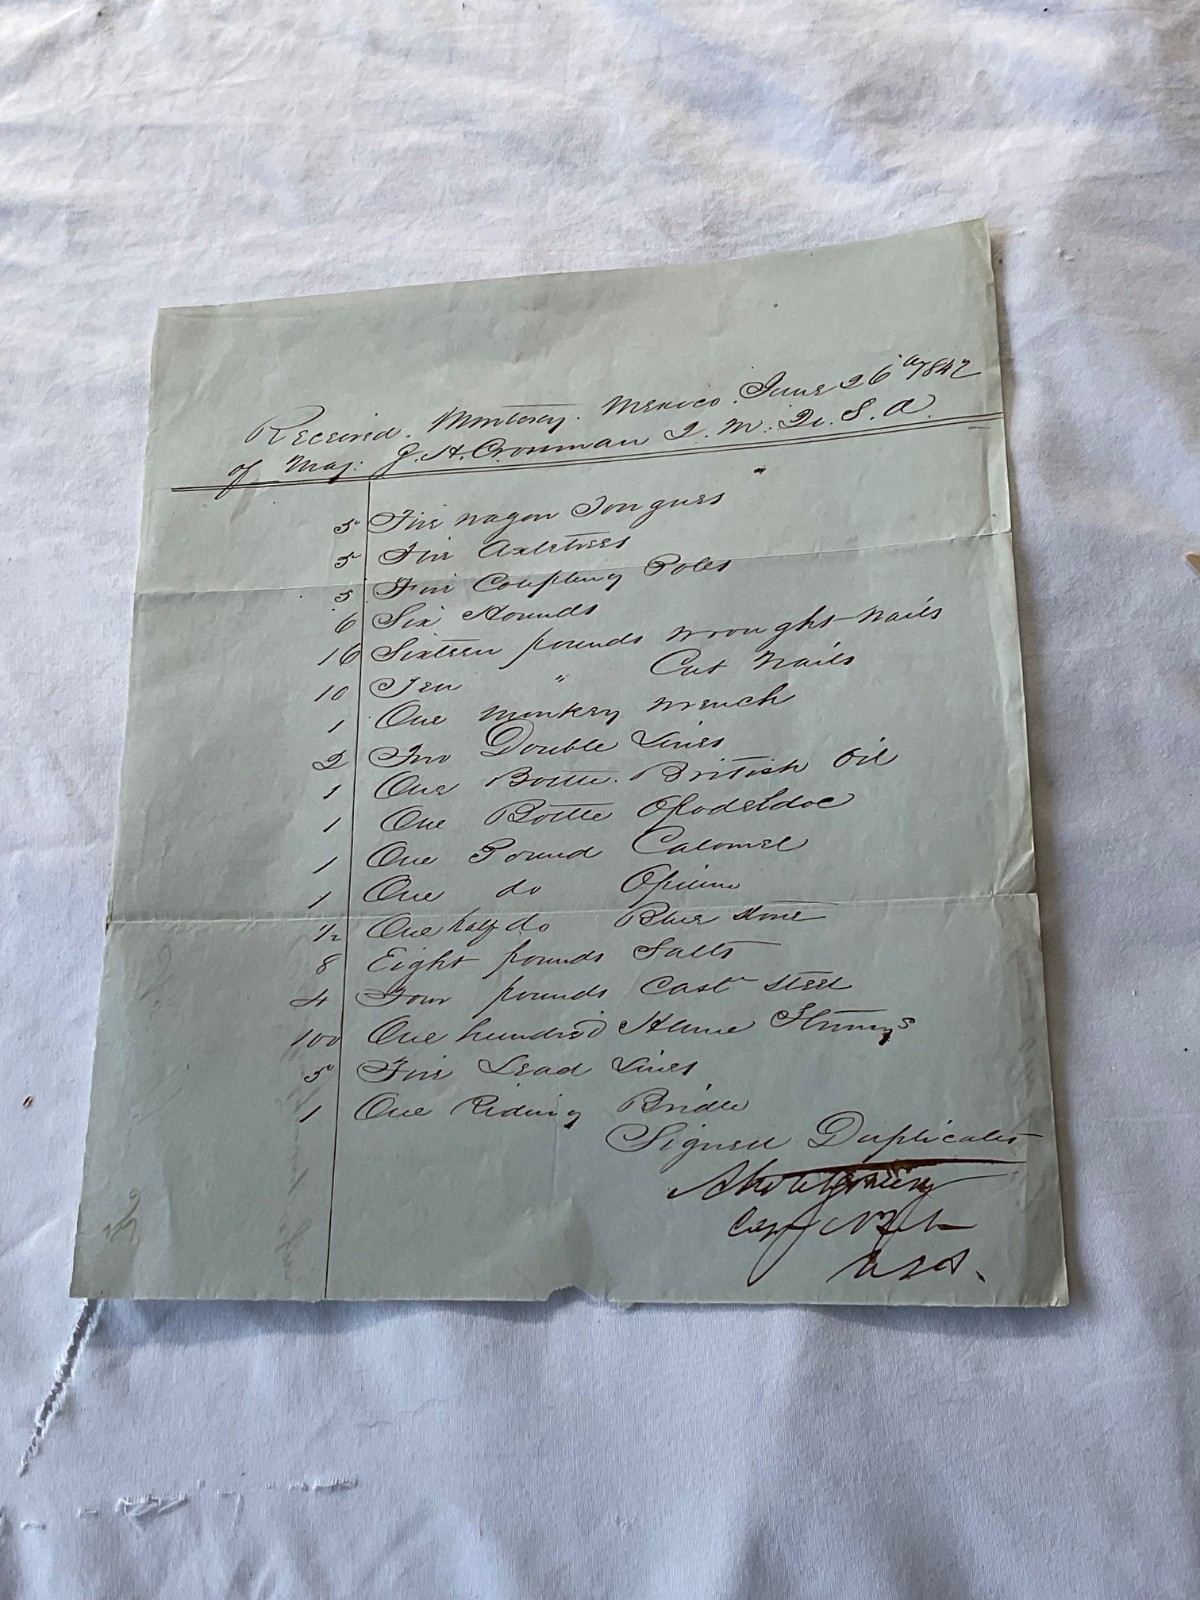 Received. Monterey. Mexico. June 26th 1847
of Maj: G. H. Crosman Q. M. U. S. A.
5 Five wagon Tongues
5 Five Axletrees
5 Five Coupling Poles
6 Six Hounds
16 Sixteen pounds wrought Nails
10 Ten " Cut Nails
1 One monkey wrench
2 Two Double Lines
1 One Bottle. British Oil
1 One Bottle Opodeldoc
1 One Pound Calomel
1 One do Opium
1/2 One half do Blue Stone
8 Eight pounds Salts
4 Four pounds Cast Steel
100 One hundred Hame Strings
5 Five Lead Lines
1 One Riding Bridle
Signed Duplicates
A Montgomery
Capt
U S A.